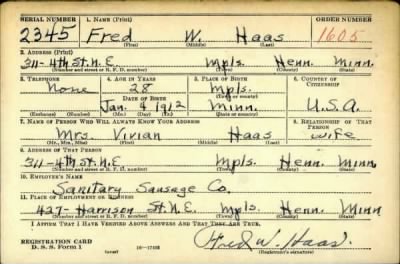 SERIAL NUMBER 1. NAME (Print) ORDER NUMBER
2345 Fred W. Haas 1605
(First) (Middle) (Last)
2. ADDRESS (Print)
311-4th St. N.E. Mpls. Henn. Minn.
(Number and street or R. F. D. number) (Town) (County) (State)
3. TELEPHONE 4. AGE IN YEARS 5. PLACE OF BIRTH 6. COUNTRY OF CITIZENSHIP
None 28 Mpls.
DATE OF BIRTH (Town or county)
Jan. 4 1912 Minn. U.S.A.
(Exchange) (Number) (Mo.) (Day) (Yr.) (State or country)
7. NAME OF PERSON WHO WILL ALWAYS KNOW YOUR ADDRESS 8. RELATIONSHIP OF THAT PERSON
Mrs. Vivian Haas Wife
(Mr., Mrs., Miss) (First) (Middle) (Last)
9. ADDRESS OF THAT PERSON
311-4th St. N.E. Mpls. Henn. Minn.
(Number and street or R. F. D. number) (Town) (County) (State)
10. EMPLOYER'S NAME
Sanitary Sausage Co.
11. PLACE OF EMPLOYMENT OR BUSINESS
427-Harrison St. N.E. Mpls. Henn. Minn
(Number and street or R. F. D. number) (Town) (County) (State)
I AFFIRM THAT I HAVE VERIFIED ABOVE ANSWERS AND THAT THEY ARE TRUE.
REGISTRATION CARD
D. S. S. FORM 1 Fred W. Haas
(Registrant's signature)